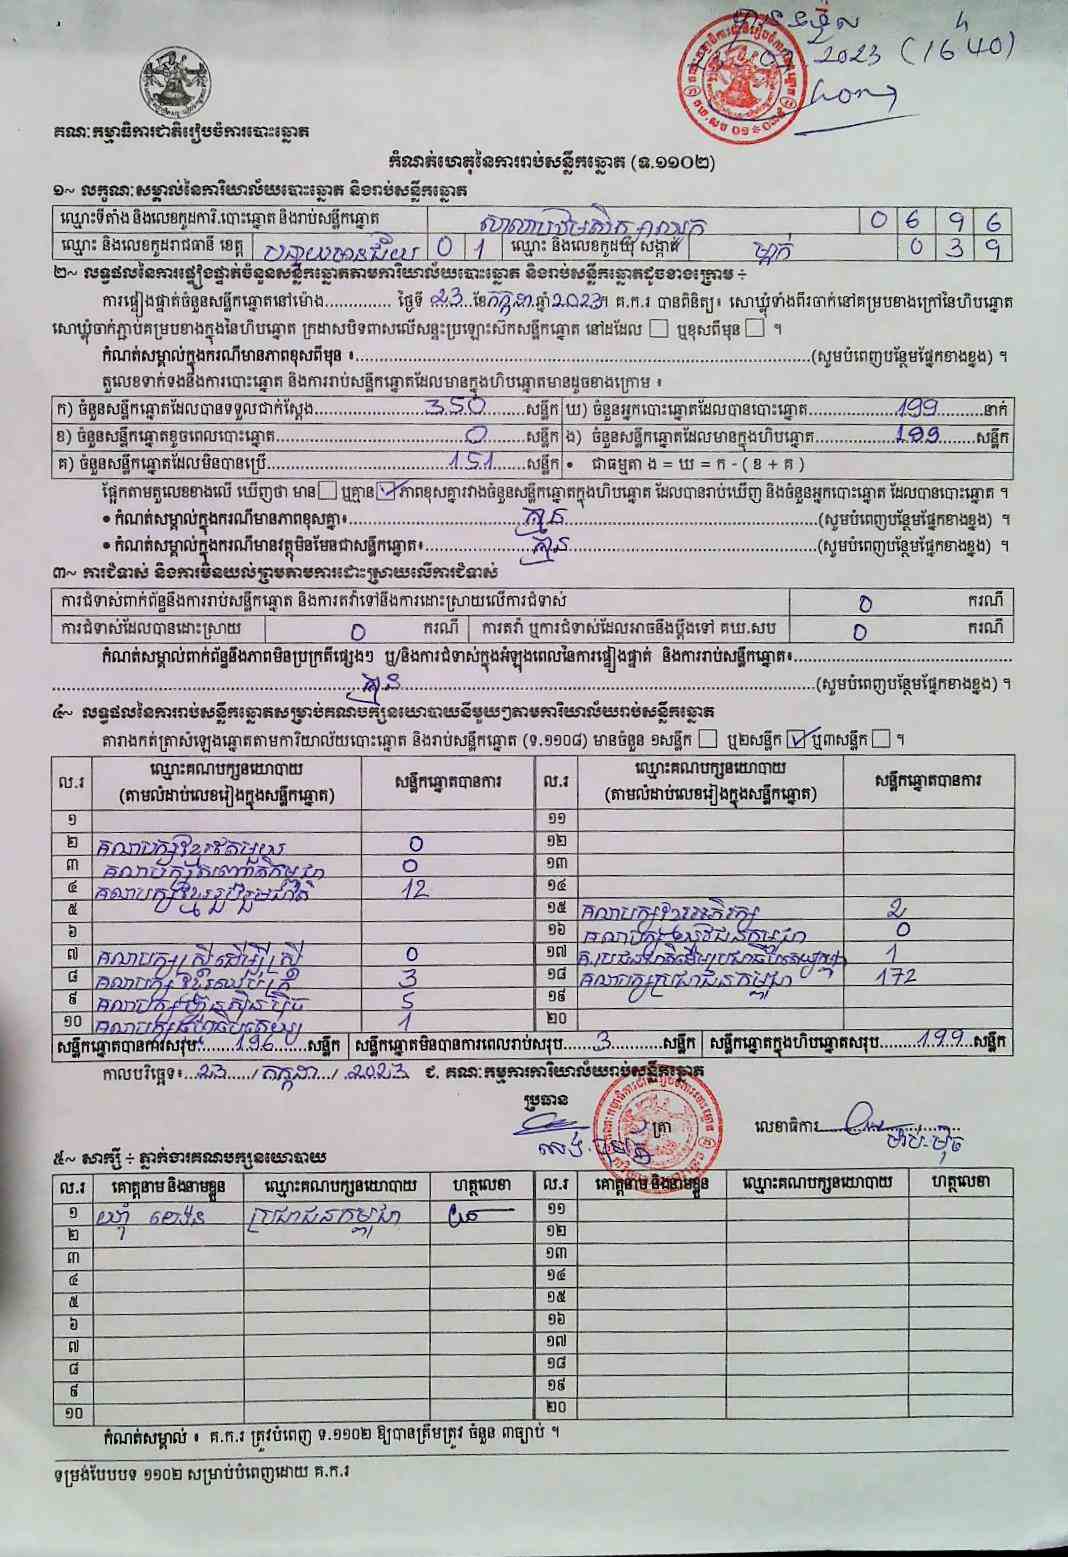 បានទទួល
2023 (16h40)
គណៈកម្មាធិការជាតិរៀបចំការបោះឆ្នោត
កំណត់ហេតុនៃការរាប់សន្លឹកឆ្នោត (ទ.១១០២)
១~ លក្ខណៈសម្គាល់នៃការិយាល័យបោះឆ្នោត និងរាប់សន្លឹកឆ្នោត
ឈ្មោះទីតាំង និងលេខកូដការិ.បោះឆ្នោត និងរាប់សន្លឹកឆ្នោត 0 6 9 6
ឈ្មោះ និងលេខកូដរាជធានី ខេត្ត បន្ទាយមានជ័យ 0 1 ឈ្មោះ និងលេខកូដឃុំ សង្កាត់ ម្កាក់ 0 3 9
២~ លទ្ធផលនៃការផ្ទៀងផ្ទាត់ចំនួនសន្លឹកឆ្នោតតាមការិយាល័យបោះឆ្នោត និងរាប់សន្លឹកឆ្នោតដូចខាងក្រោម ÷
ការផ្ទៀងផ្ទាត់ចំនួនសន្លឹកឆ្នោតនៅម៉ោង.............. ថ្ងៃទី 23 ខែ កក្កដា ឆ្នាំ 2023។ គ.ក.រ បានពិនិត្យ៖ សោឃ្លុំទាំងពីរចាក់នៅគម្របខាងក្រៅនៃហិបឆ្នោត
សោឃ្លុំចាក់ភ្ជាប់គម្របខាងក្នុងនៃហិបឆ្នោត ក្រដាសបិទពាសលើសន្ទះប្រឡោះសឹកសន្លឹកឆ្នោត នៅដដែល □ ឬខុសពីមុន □ ។
កំណត់សម្គាល់ក្នុងករណីមានភាពខុសពីមុន ៖..............(សូមបំពេញបន្ថែមផ្នែកខាងខ្នង) ។
តួលេខទាក់ទងនឹងការបោះឆ្នោត និងការរាប់សន្លឹកឆ្នោតដែលមានក្នុងហិបឆ្នោតមានដូចខាងក្រោម ៖
ក) ចំនួនសន្លឹកឆ្នោតដែលបានទទួលជាក់ស្តែង 350 សន្លឹក ឃ) ចំនួនអ្នកបោះឆ្នោតដែលបានបោះឆ្នោត 199 នាក់
ខ) ចំនួនសន្លឹកឆ្នោតខូចពេលបោះឆ្នោត 0 សន្លឹក ង) ចំនួនសន្លឹកឆ្នោតដែលមានក្នុងហិបឆ្នោត 199 សន្លឹក
គ) ចំនួនសន្លឹកឆ្នោតដែលមិនបានប្រើ 151 សន្លឹក • ជាធម្មតា ង = ឃ = ក - ( ខ + គ )
ផ្អែកតាមតួលេខខាងលើ ឃើញថា មាន □ ឬគ្មាន ☑ ភាពខុសគ្នារវាងចំនួនសន្លឹកឆ្នោតក្នុងហិបឆ្នោត ដែលបានរាប់ឃើញ និងចំនួនអ្នកបោះឆ្នោត ដែលបានបោះឆ្នោត ។
• កំណត់សម្គាល់ក្នុងករណីមានភាពខុសគ្នា៖ គ្មាន (សូមបំពេញបន្ថែមផ្នែកខាងខ្នង) ។
• កំណត់សម្គាល់ក្នុងករណីមានវត្ថុមិនមែនជាសន្លឹកឆ្នោត៖ គ្មាន (សូមបំពេញបន្ថែមផ្នែកខាងខ្នង) ។
៣~ ការជំទាស់ និងការមិនយល់ព្រមតាមការដោះស្រាយលើការជំទាស់
ការជំទាស់ពាក់ព័ន្ធនឹងការរាប់សន្លឹកឆ្នោត និងការតវ៉ាទៅនឹងការដោះស្រាយលើការជំទាស់ 0 ករណី
ការជំទាស់ដែលបានដោះស្រាយ 0 ករណី ការតវ៉ា ឬការជំទាស់ដែលអាចនឹងប្តឹងទៅ គឃ.សប 0 ករណី
កំណត់សម្គាល់ពាក់ព័ន្ធនឹងភាពមិនប្រក្រតីផ្សេងៗ ឬ/និងការជំទាស់ក្នុងអំឡុងពេលនៃការផ្ទៀងផ្ទាត់ និងការរាប់សន្លឹកឆ្នោត៖
គ្មាន (សូមបំពេញបន្ថែមផ្នែកខាងខ្នង) ។
៤~ លទ្ធផលនៃការរាប់សន្លឹកឆ្នោតសម្រាប់គណបក្សនយោបាយនីមួយៗតាមការិយាល័យរាប់សន្លឹកឆ្នោត
តារាងកត់ត្រាសំឡេងឆ្នោតតាមការិយាល័យបោះឆ្នោត និងរាប់សន្លឹកឆ្នោត (ទ.១១០៨) មានចំនួន ១សន្លឹក □ ឬ២សន្លឹក ☑ ឬ៣សន្លឹក □ ។
ល.រ ឈ្មោះគណបក្សនយោបាយ (តាមលំដាប់លេខរៀងក្នុងសន្លឹកឆ្នោត) សន្លឹកឆ្នោតបានការ ល.រ ឈ្មោះគណបក្សនយោបាយ (តាមលំដាប់លេខរៀងក្នុងសន្លឹកឆ្នោត) សន្លឹកឆ្នោតបានការ
១ ១១
២ គណបក្សខ្មែរតែមួយ 0 ១២
៣ គណបក្សសញ្ជាតិកម្ពុជា 0 ១៣
៤ គណបក្សខ្មែររួបរួមជាតិ 12 ១៤
៥ ១៥ គណបក្សខ្មែរអភិរក្ស 2
៦ ១៦ គណបក្សយុវជនកម្ពុជា 0
៧ គណបក្សស្រីដើម្បីស្រី 0 ១៧ 1
៨ 3 ១៨ គណបក្សប្រជាជនកម្ពុជា 172
៩ គណបក្សហ៊្វុនស៊ិនប៉ិច 5 ១៩
១០ គណបក្សធម្មាធិបតេយ្យ 1 ២០
សន្លឹកឆ្នោតបានការសរុប: 196 សន្លឹក សន្លឹកឆ្នោតមិនបានការពេលរាប់សរុប 3 សន្លឹក សន្លឹកឆ្នោតក្នុងហិបឆ្នោតសរុប 199 សន្លឹក
កាលបរិច្ឆេទ៖ 23 / កក្កដា / 2023 ជ. គណៈកម្មការការិយាល័យរាប់សន្លឹកឆ្នោត
ប្រធាន
ត្រា លេខាធិការ
៥~ សាក្សី ÷ ភ្នាក់ងារគណបក្សនយោបាយ
ល.រ គោត្តនាម និងនាមខ្លួន ឈ្មោះគណបក្សនយោបាយ ហត្ថលេខា ល.រ គោត្តនាម និងនាមខ្លួន ឈ្មោះគណបក្សនយោបាយ ហត្ថលេខា
១ ប្រជាជនកម្ពុជា ១១
២ ១២
៣ ១៣
៤ ១៤
៥ ១៥
៦ ១៦
៧ ១៧
៨ ១៨
៩ ១៩
១០ ២០
កំណត់សម្គាល់ ៖ គ.ក.រ ត្រូវបំពេញ ទ.១១០២ ឱ្យបានត្រឹមត្រូវ ចំនួន ៣ច្បាប់ ។
ទម្រង់បែបបទ ១១០២ សម្រាប់បំពេញដោយ គ.ក.រ